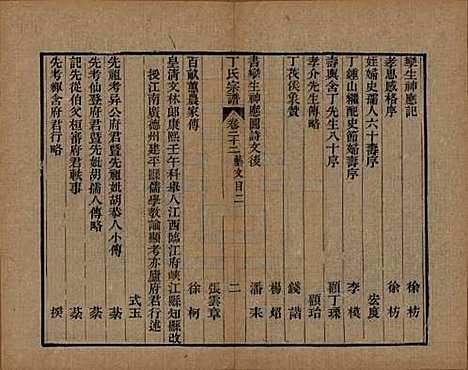 孿生神應記 徐枋
孝思感格序 徐枋
姪婦史孺人六十壽序 宏度
丁鍾山繼配史節婦壽序 李模
壽與舍丁三兄八十序 顧丁瑮
孝介先生傳略 顧玿
丁茂俟象贊 錢諧
楊炤
書孿生神應圖詩文後 潘耒
丁氏宗譜 卷二十二 藝文目二 二
張雲章
百畝董農家傳 徐柯
皇清文林郎康熙壬午科舉人江西臨江府峽江縣知縣改
授江南廣德州建平縣儒學教諭顯考亦廬府君行述
式玉
先祖考异公府君暨先祖妣胡恭人小傳 棻
先考仙登府君暨先妣胡孺人傳略 棻
記先伯父桓番府君軼事 棻
先考舍府君行略 揆